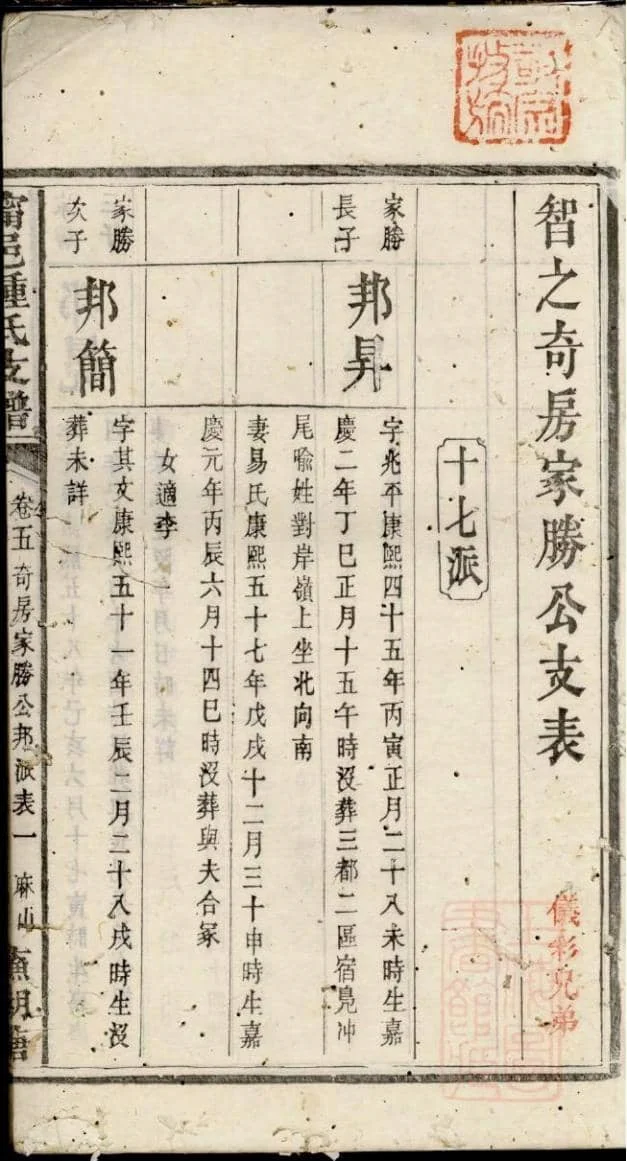 智之奇房家勝公支表
儀彩兄弟
十七派
家勝
長子
邦昇
字兆平康熙四十五年丙寅正月二十八未時生嘉
慶二年丁巳正月十五午時沒葬三都二區宿凫冲
尾喻姓對岸嶺上坐北向南
妻易氏康熙五十七年戊戌十二月三十申時生嘉
慶元年丙辰六月十四巳時沒葬與夫合冢
女適李
家勝
次子
邦簡
字其文康熙五十一年壬辰二月二十八戌時生沒
葬未詳
甯邑鍾氏支譜
卷五奇房家勝公邦派表一
麻山